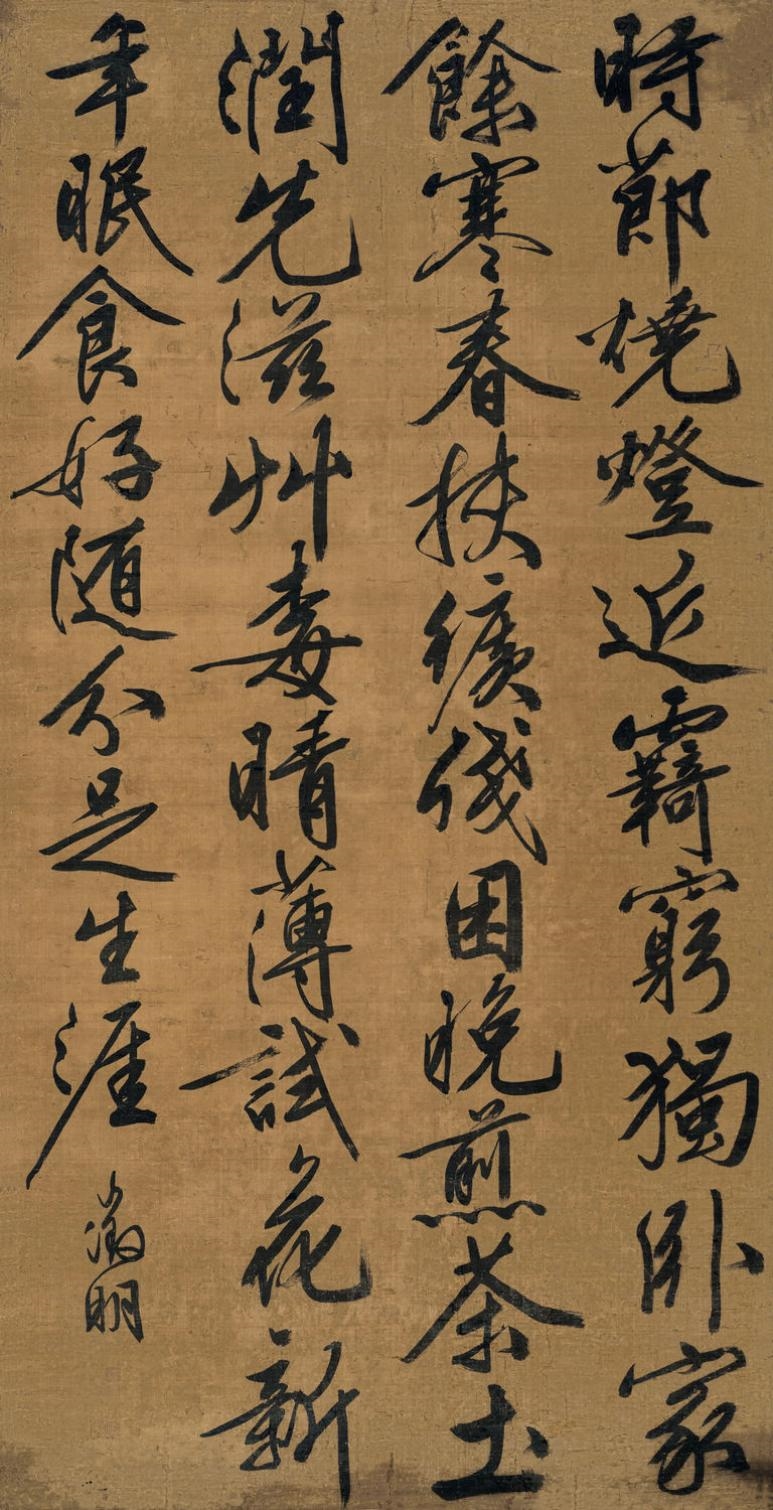 時節燒燈近覉窮獨臥家
餘寒春挾纊殘困晚煎茶土
潤先滋艸晴薄試花新
年眠食好隨分足生涯 徵明